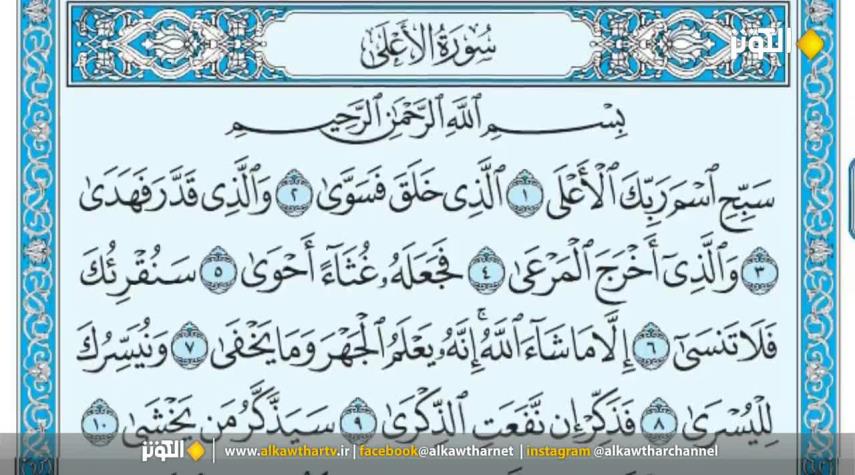 الكوثر
سُورَةُ الأَعْلَىٰ
بِسْمِ ٱللَّهِ ٱلرَّحْمَٰنِ ٱلرَّحِيمِ
سَبِّحِ ٱسْمَ رَبِّكَ ٱلْأَعْلَى ١ ٱلَّذِى خَلَقَ فَسَوَّىٰ ٢ وَٱلَّذِى قَدَّرَ فَهَدَىٰ
٣ وَٱلَّذِىٓ أَخْرَجَ ٱلْمَرْعَىٰ ٤ فَجَعَلَهُۥ غُثَآءً أَحْوَىٰ ٥ سَنُقْرِئُكَ
فَلَا تَنسَىٰٓ ٦ إِلَّا مَا شَآءَ ٱللَّهُ ۚ إِنَّهُۥ يَعْلَمُ ٱلْجَهْرَ وَمَا يَخْفَىٰ ٧ وَنُيَسِّرُكَ
لِلْيُسْرَىٰ ٨ فَذَكِّرْ إِن نَّفَعَتِ ٱلذِّكْرَىٰ ٩ سَيَذَّكَّرُ مَن يَخْشَىٰ ١٠
الكوثر | www.alkawthartv.ir | facebook@alkawtharnet | instagram @alkawtharchannel